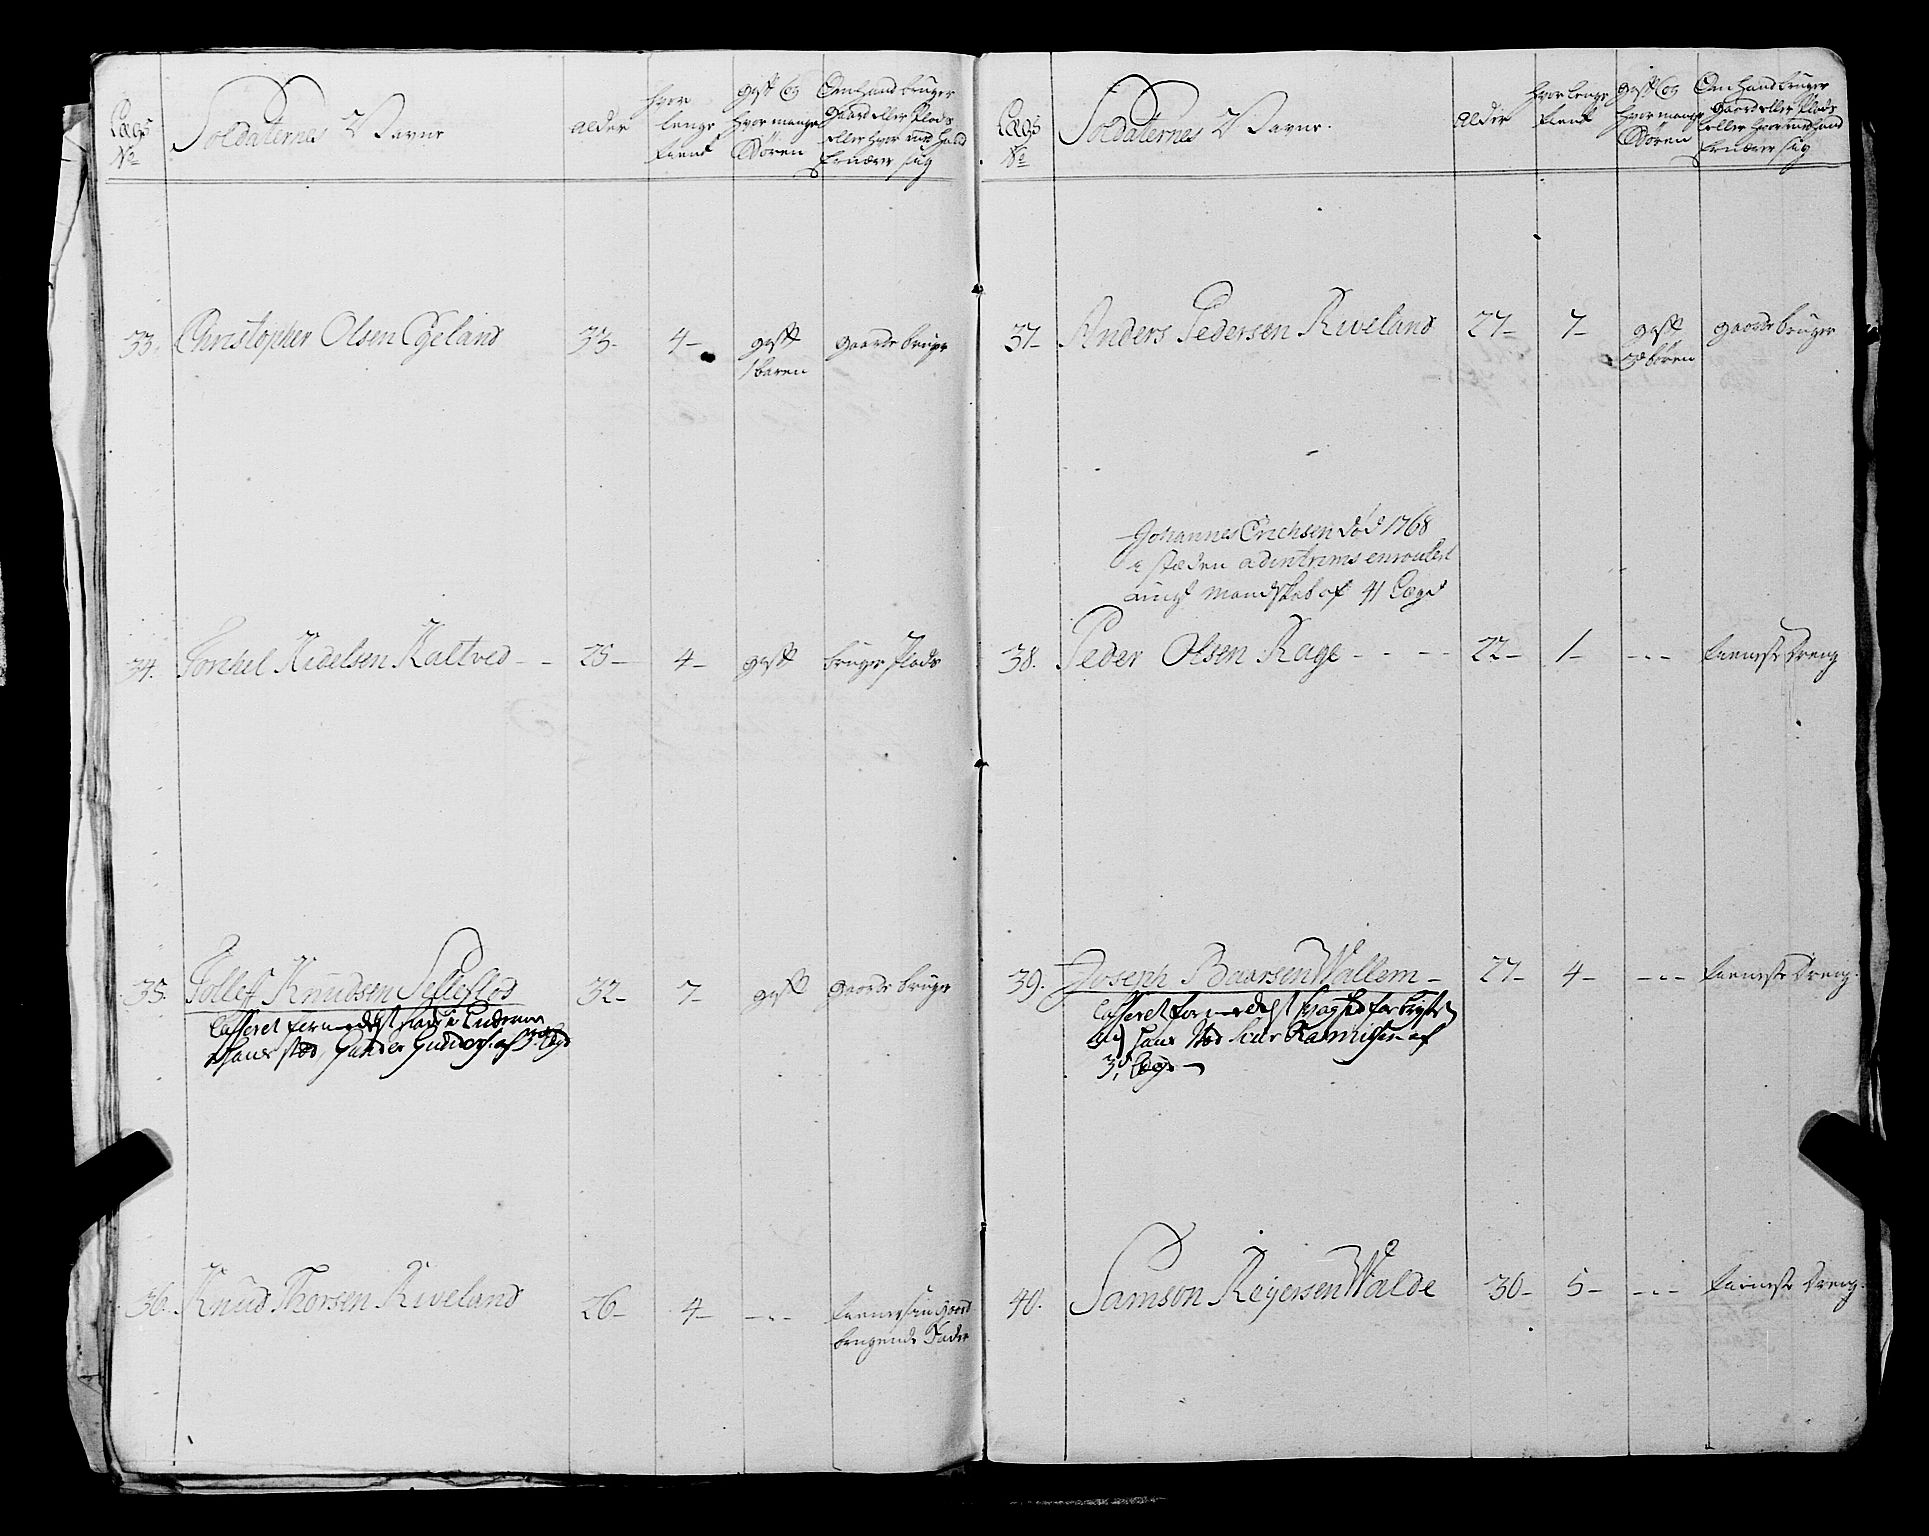 Lægs No
Soldaternes Navne
alder
hvor lenge tient
gift og hvor mange Bören
Om hand bruger Gaard eller Plads eller hvor ved hand Ernærer sig
33. Christopher Olsen Egeland 33- 4- gift 1 baren gaardebruger
34. Torchel Kidelsen Kaltved - - 25- 4- gift bruger Plads
35. Tollef Knudsen Selleflod 32- 7- gift gaardebruger
Casseret formedelst
hans sted, Gunder Gunders. af 3. Lægd
36. Knud Thorsen Kiveland 26- 4- - - - tiener sin gaard
brugende Fader
Lægs No
Soldaternes Navne.
alder
hvor lenge tient
gift og hvor mange Bören
Om hand bruger Gaard eller Plads eller hvor ved hand Ernærer sig
37- Anders Pedersen Kiveland 27- 7- gift
og bören gaardebruger
Johannes Erichsen död 1768
i stæden enroulert
ungt Mandskab af 41 Lægd
38. Peder Olsen Rage - - - - 22- 1- - - - tieneste Dreng
39. Joseph Baarsen Wallem - 27- 4- - - - tieneste Dreng.
Casseret formedelst
hans sted Rasmusen af
3. Lægd -
40. Samson Reijersen Walde 30- 5- - - - tieneste Dreng.